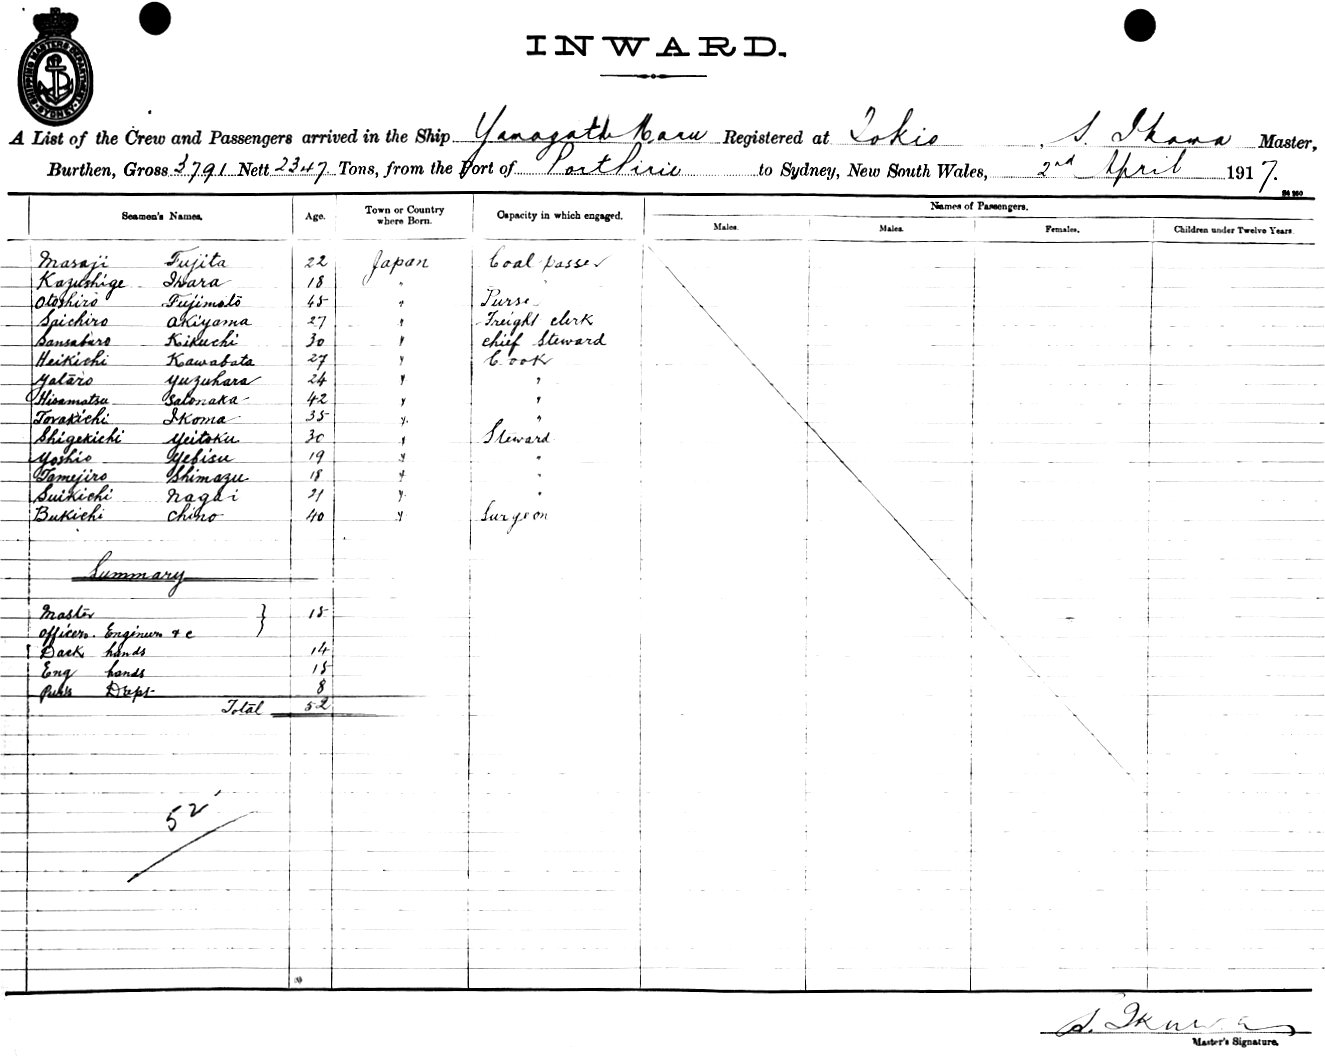 SHIPPING MASTERS DEPARTMENT SYDNEY
INWARD.
A List of the Crew and Passengers arrived in the Ship Yamagata Maru Registered at Tokio, S. Ikawa Master,
Burthen, Gross 3791 Nett 2347 Tons, from the Port of Port Pirie to Sydney, New South Wales, 2nd April 1917.
Seamen's Names. Age. Town or Country where Born. Capacity in which engaged. Names of Passengers.
Males. Males. Females. Children under Twelve Years.
Masaji Fujita 22 Japan Coal passer
Kazushige Ihara 18 " "
Otoshiro Fujimoto 45 " Purser
Saichiro Akiyama 27 " Freight clerk
Sansaburo Kikuchi 30 " chief Steward
Heikichi Kawabata 27 " Cook
Yataro Yuzuhara 24 " "
Hisamatsu Satonaka 42 " "
Torakichi Ikoma 35 " "
Shigekichi Yeitoku 30 " Steward
Yoshio Yebisu 19 " "
Tamejiro Shimazu 18 " "
Suikichi Nagai 21 " "
Bukichi Chino 40 " Surgeon
Summary
Master } 15
Officers. Engineers & c
Deck hands 14
Eng hands 15
Purs Dept 8
Total 52
52
S. Ikawa
Master's Signature.